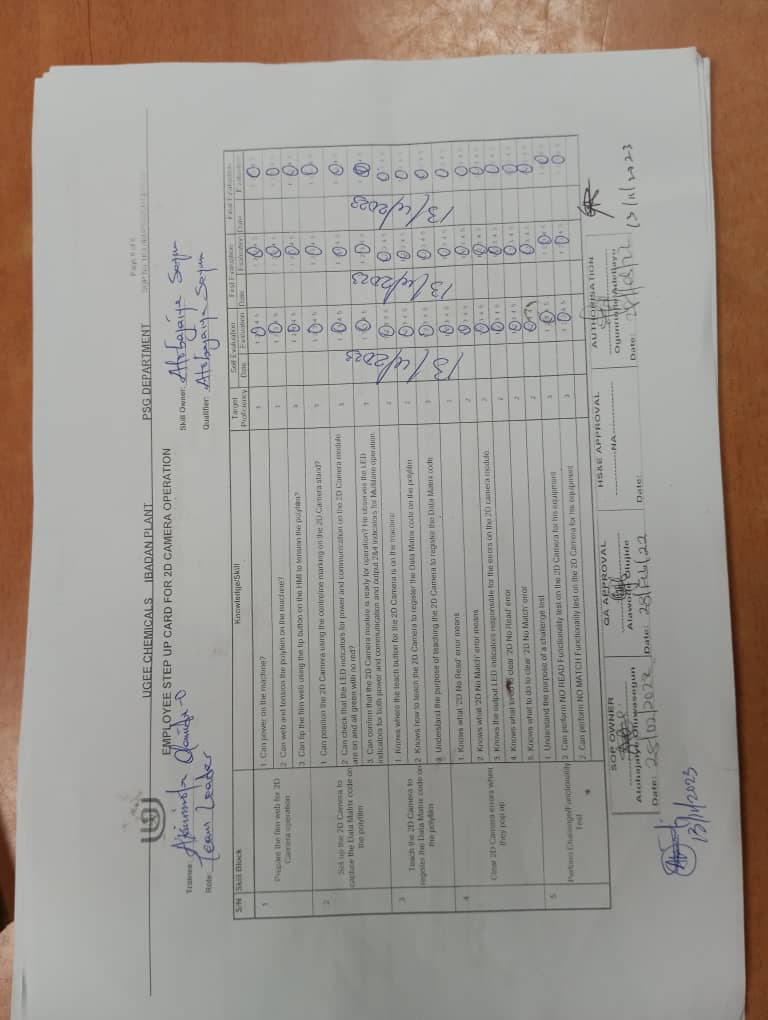 UGEE CHEMICALS IBADAN PLANT PSG DEPARTMENT
EMPLOYEE STEP UP CARD FOR 2D CAMERA OPERATION
Trainee: Akinmola Olamide-O
Skill Owner: Atobajaiye Segun
Role: Team Leader
Qualifier: Atobajaiye Segun
S/N Skill Block Knowledge/Skill Target Proficiency Self Evaluation Date Evaluation First Evaluation Date Evaluation Final Evaluation Date Evaluation
13/11/2023 13/11/2023 13/11/2023
1 Prepare the film web for 2D Camera operation
1. Can power on the machine? 3
2. Can web and tension the polyfilm on the machine? 3
3. Can tip the film web using the tip button on the HMI to tension the polyfilm? 3
2 Set up the 2D Camera to capture the Data Matrix code on the polyfilm
1. Can position the 2D Camera using the centreline marking on the 2D Camera stand? 3
2. Can check that the LED indicators for power and communication on the 2D Camera module are on and all green with no red? 3
3. Can confirm that the 2D Camera module is ready for operation? He observes the LED indicators for both power and communication and output 2&4 indicators for Multilane operation. 3
3 Teach the 2D Camera to register the Data Matrix code on the polyfilm
1. Knows where the teach button for the 2D Camera is on the machine 2
2. Knows how to teach the 2D Camera to register the Data Matrix code on the polyfilm
3. Understand the purpose of teaching the 2D Camera to register the Data Matrix code
4 Clear 2D Camera errors when they pop up
1. Knows what '2D No Read' error means 2
2. Knows what '2D No Match' error means 2
3. Knows the output LED indicators responsible for the errors on the 2D camera module 2
4. Knows what to do to clear '2D No Read' error 2
5. Knows what to do to clear '2D No Match' error 2
5 Perform Challenge/Functionality Test
1. Understand the purpose of a challenge test 3
2. Can perform NO READ Functionality test on the 2D Camera for his equipment
2. Can perform NO MATCH Functionality test on the 2D Camera for his equipment 3
SOP OWNER QA APPROVAL HS&E APPROVAL AUTHORISATION
Atobajaiye Oluwasegun Alawode Olujide NA Ogunjuyigbe Adedayo
Date: 28/02/2022 Date: 28/Feb/22 Date: Date:
13/11/2023 13/11/2023